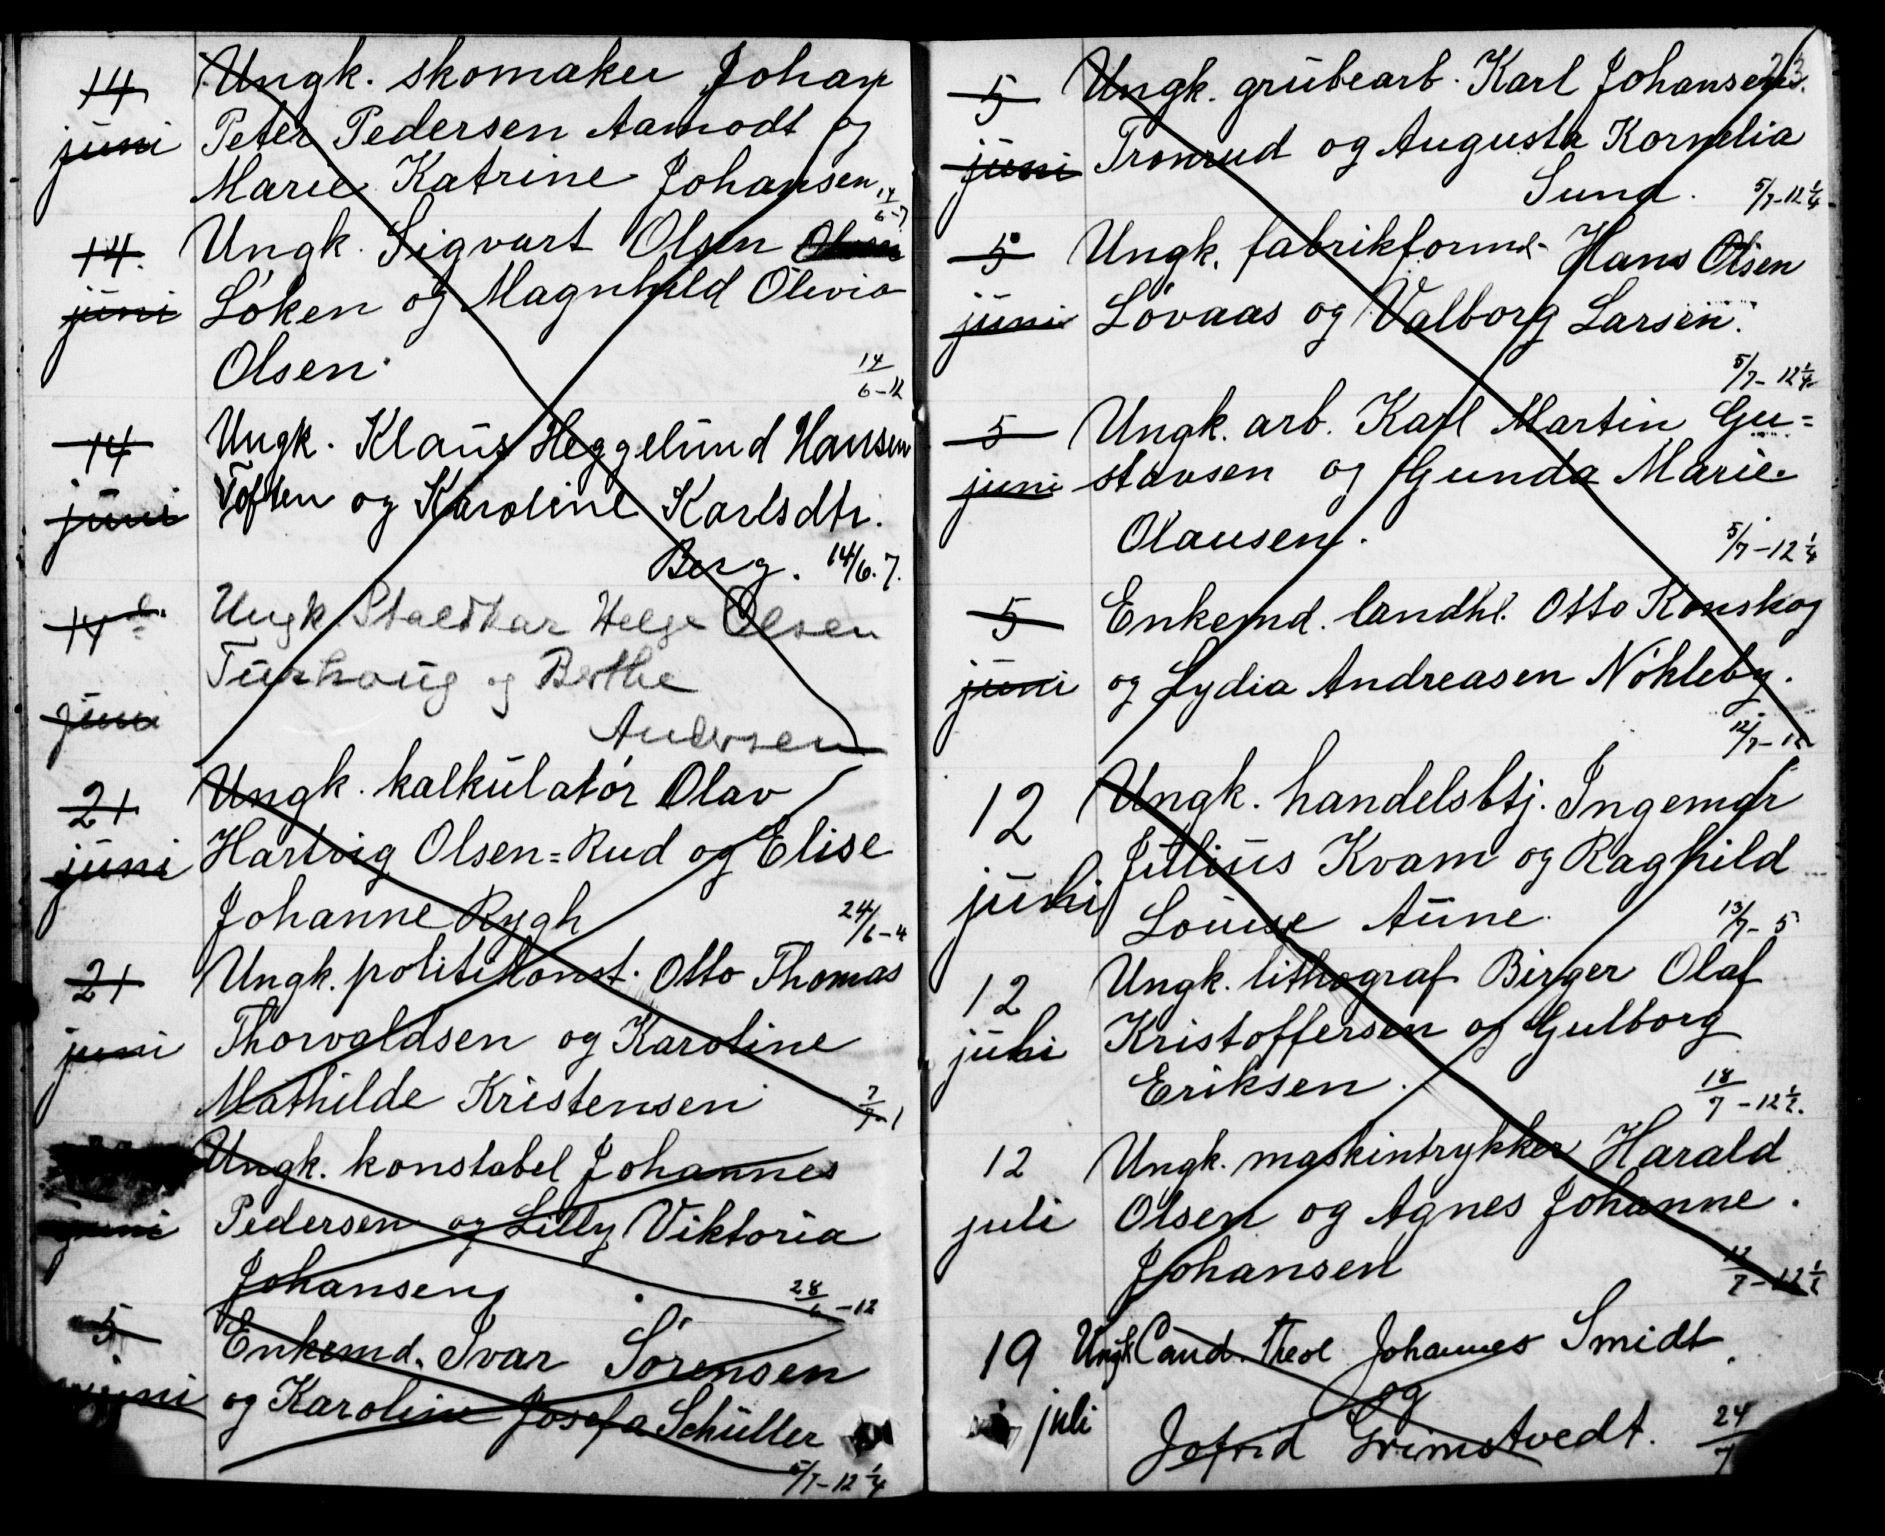 14 Ungk. skomaker Johan
juni Peter Pedersen Aamodt og
Marie Katrine Johansen. 14/6-7
14. Ungk. Sigvart Olsen
juni Løken og Magnhild Olivia
Olsen. 14/6-12
14 Ungk. Klaus Heggelund Hansen
juni Toften og Karoline Karlsdtr.
Berg. 14/6. 7.
14 Ungk Staldkar Helge Olsen
og Berthe
juni Andersen
21 Ungk. kalkulatør Olav
juni Hartvig Olsen=Rud og Elise
Johanne Rygh 24/6-4
21 Ungk. politikonst. Otto Thomas
juni Thorvaldsen og Karoline
Mathilde Kristensen 7/7-1
Ungk. konstabel Johannes
juni Pedersen og Lilly Viktoria
Johansen. 28/6-12
5 Enkemd. Ivar Sørensen
juni og Karoline Josefa Schüller
5/7-12 1/4
23.
5 Ungk. grubearb. Karl Johansen
juni Tronrud og Augusta Kornelia
Sund. 5/7-12 1/4
5 Ungk. fabrikform. Hans Olsen
juni Løvaas og Valborg Larsen.
5/7-12 1/4
5 Ungk. arb. Karl Martin Gu=
juni stavsen og Gunda Marie
Olausen. 5/7-12 1/4
5 Enkemd. landhl. Otto Konskog
juni og Lydia Andreasen Nøkleby.
12/7-12
12 Ungk. handelsbtj. Ingemar
juli Julius Kvam og Raghild
Louise Aune. 13/7-5
12 Ungk. lithograf Birger Olaf
juli Kristoffersen og Gulborg
Eriksen. 18/7-12 1/2.
12 Ungk. maskintrykker Harald
juli Olsen og Agnes Johanne.
Johansen 12/7-12 1/2
19 Ungk Cand. Theol Johannes Smidt.
og
juli Jofrid Grimstvedt. 24/7